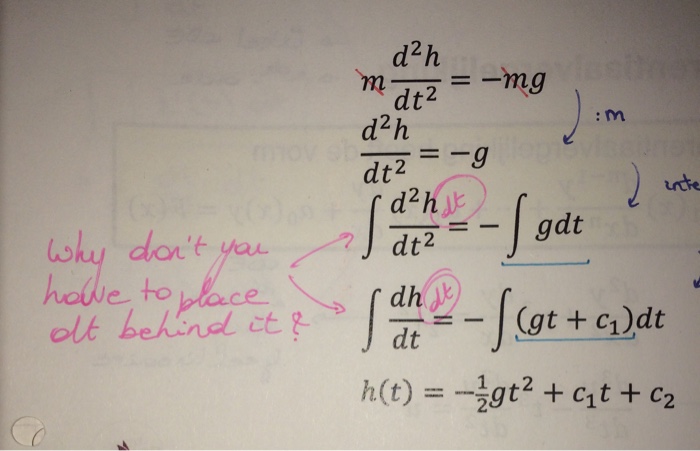 m d²h/dt² = −mg
:m
d²h/dt² = −g
∫ d²h/dt² dt = −∫ gdt
inte
Why don't you
have to place
dt behind it?
∫ dh/dt dt = −∫ (gt + c₁)dt
h(t) = −½gt² + c₁t + c₂